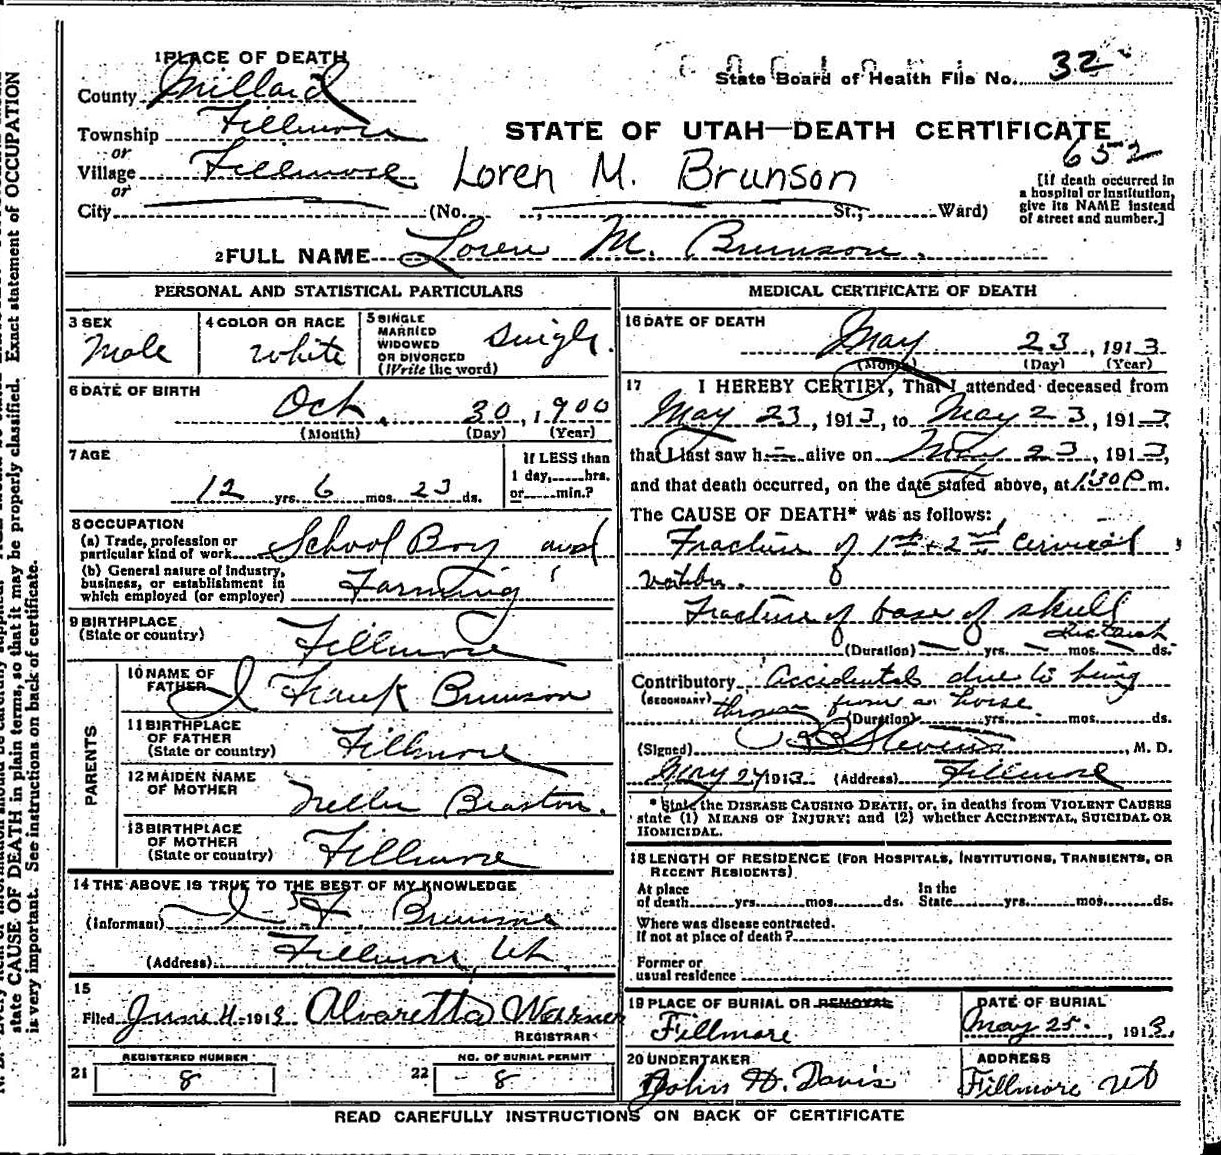 1 PLACE OF DEATH
State Board of Health File No. 32
County Millard
Township Fillmore
or
STATE OF UTAH—DEATH CERTIFICATE
652
Village Fillmore
or
Loren M. Brunson
[If death occurred in a hospital or institution, give its NAME instead of street and number.]
City (No. , St.; Ward)
2 FULL NAME Loren M. Brunson.
PERSONAL AND STATISTICAL PARTICULARS
3 SEX
Male
4 COLOR OR RACE
White
5 SINGLE
MARRIED
WIDOWED
OR DIVORCED
(Write the word)
Single.
6 DATE OF BIRTH
Oct. 30, 1900
(Month) (Day) (Year)
7 AGE
12 yrs. 6 mos. 23 ds.
If LESS than
1 day, hrs.
or min.?
8 OCCUPATION
(a) Trade, profession or
particular kind of work School Boy and
(b) General nature of industry,
business, or establishment in
which employed (or employer) Farming
9 BIRTHPLACE
(State or country) Fillmore
PARENTS
10 NAME OF
FATHER I Frank Brunson
11 BIRTHPLACE
OF FATHER
(State or country) Fillmore
12 MAIDEN NAME
OF MOTHER Nellie Beaston.
13 BIRTHPLACE
OF MOTHER
(State or country) Fillmore
14 THE ABOVE IS TRUE TO THE BEST OF MY KNOWLEDGE
(Informant) I. F. Brunson
(Address) Fillmore, Ut.
15
Filed June 4 1913 Alvaretta Warner
REGISTRAR
REGISTERED NUMBER
21 8
NO. OF BURIAL PERMIT
22 8
MEDICAL CERTIFICATE OF DEATH
16 DATE OF DEATH
May 23, 1913
(Month) (Day) (Year)
17 I HEREBY CERTIFY, That I attended deceased from
May 23, 1913, to May 23, 1913,
that I last saw h alive on May 23, 1913,
and that death occurred, on the date stated above, at 1:30 P m.
The CAUSE OF DEATH* was as follows:
Fracture of 1st + 2nd Cervical
Fracture of base of skull
(Duration) yrs. mos. ds.
Contributory Accidental due to being
(SECONDARY) thrown from a horse.
(Duration) yrs. mos. ds.
(Signed) Stevens, M. D.
May 24 1913. (Address) Fillmore
* State the DISEASE CAUSING DEATH, or, in deaths from VIOLENT CAUSES
state (1) MEANS OF INJURY; and (2) whether ACCIDENTAL, SUICIDAL OR
HOMICIDAL.
18 LENGTH OF RESIDENCE (FOR HOSPITALS, INSTITUTIONS, TRANSIENTS, OR
RECENT RESIDENTS)
At place
of death yrs. mos. ds.
In the
State yrs. mos. ds.
Where was disease contracted.
if not at place of death?
Former or
usual residence
19 PLACE OF BURIAL OR REMOVAL
Fillmore
DATE OF BURIAL
May 25. , 1913.
20 UNDERTAKER
John H. Davis
ADDRESS
Fillmore Ut
READ CAREFULLY INSTRUCTIONS ON BACK OF CERTIFICATE
state CAUSE OF DEATH in plain terms, so that it may be properly classified. Exact statement of OCCUPATION
is very important. See instructions on back of certificate.